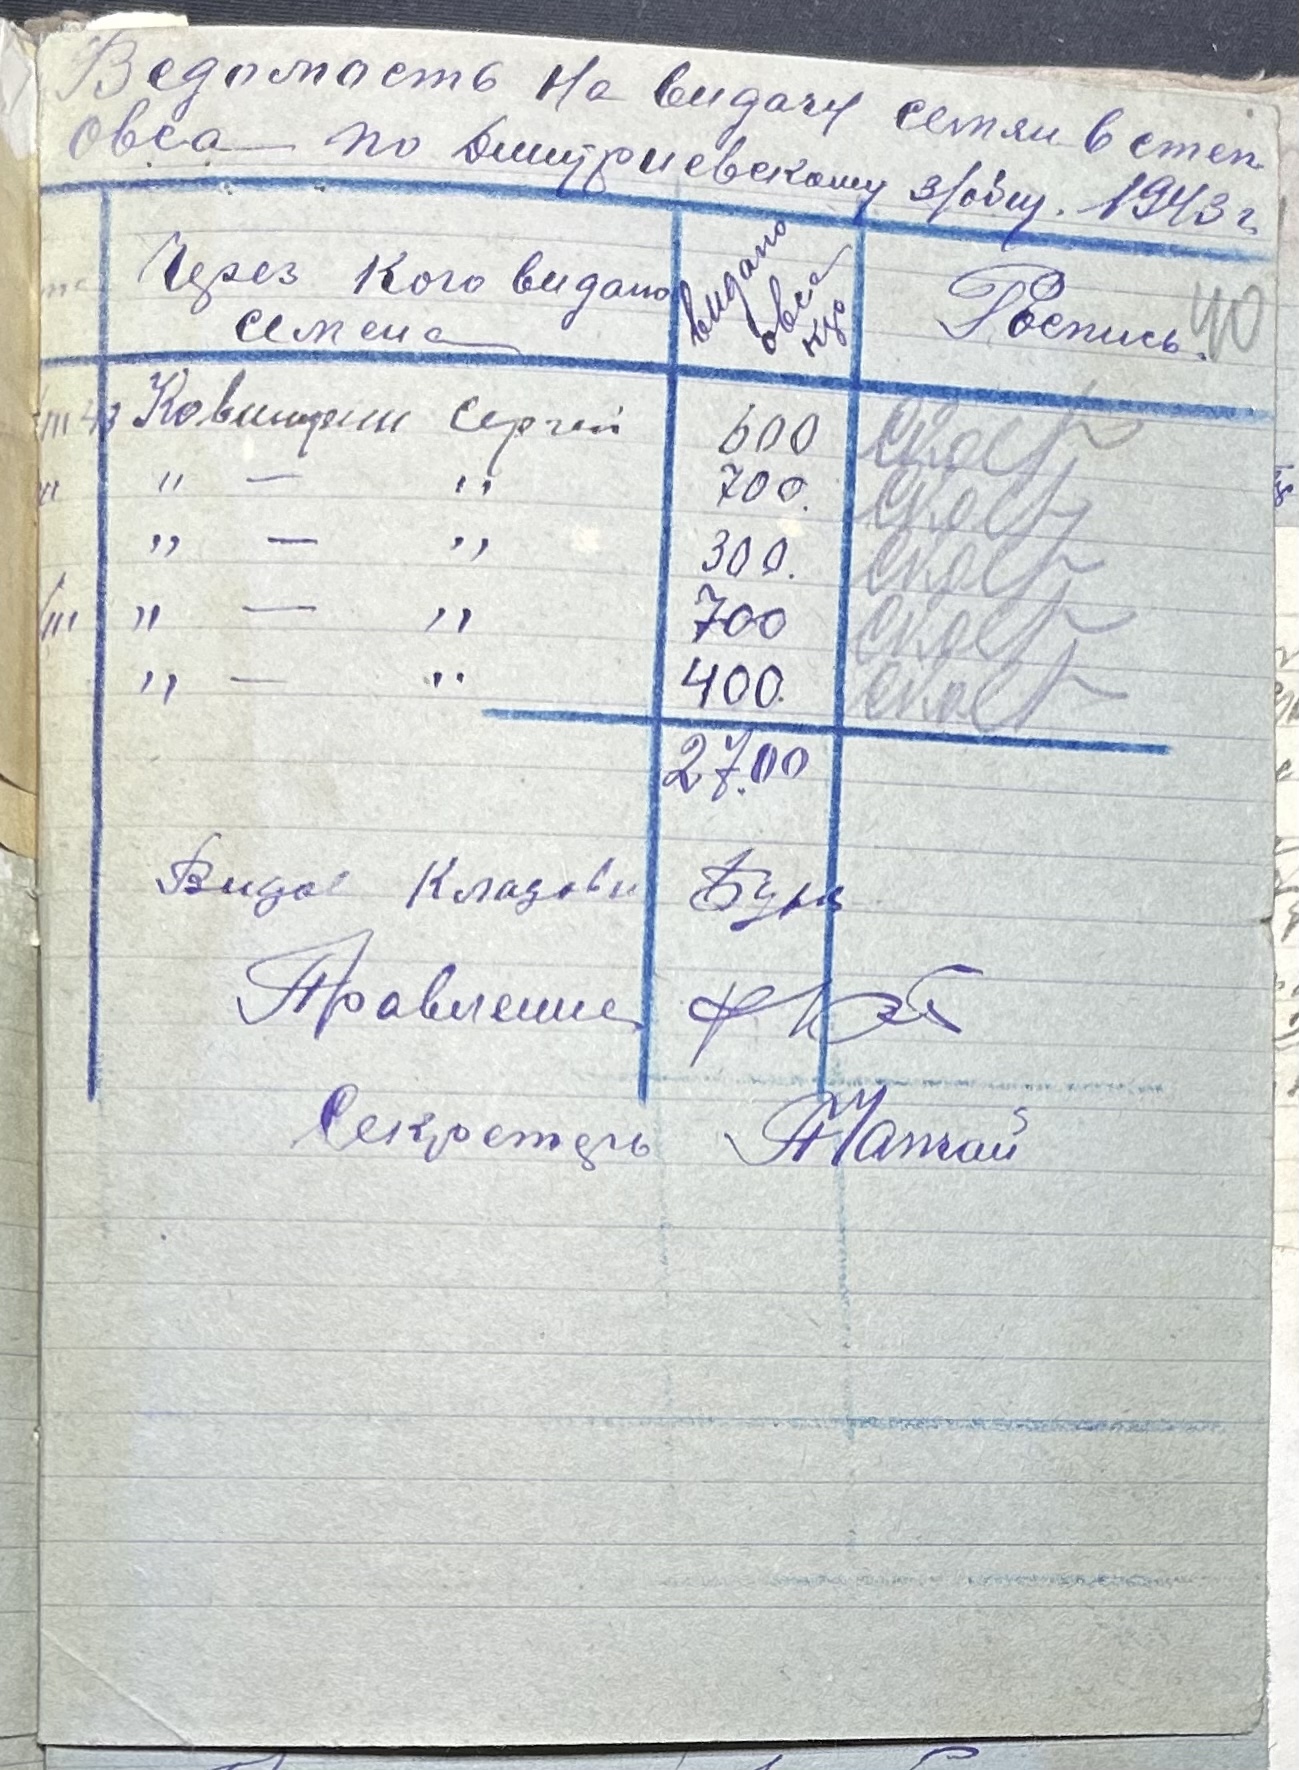 Ведомасть На видачу семян в степ
Овса по Дмитриевскому з/общ. 1943 г
Через кого видано семена
видано овса кгр
Роспись.
40
III 43 Сергей 600
" — " 700.
" — " 300.
III " — " 700
" — " 400.
27.00
Видал Кладовщ
Правление
Секретарь